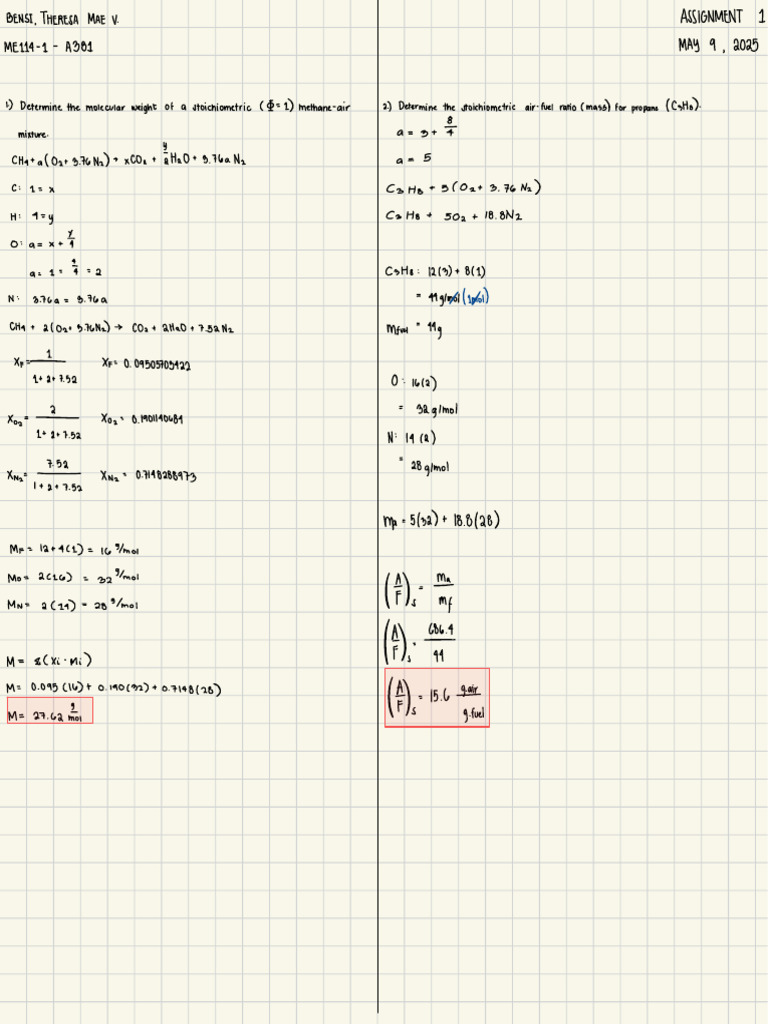 BENSI, THERESA MAE V.
ME114-1 - A381
ASSIGNMENT 1
MAY 9, 2025
1) Determine the molecular weight of a stoichiometric (Φ=1) methane-air
mixture.
CH4+a(O2+3.76N2)→xCO2+y/2H2O+3.76aN2
C: 1=x
H: 4=y
O: a=x+y/4
a=1=4/4=2
N: 3.76a=3.76a
CH4+2(O2+3.76N2)→CO2+2H2O+7.52N2
XF=1/1+2+7.52 XF=0.09505703422
XO2=2/1+2+7.52 XO2=0.1901140684
XN2=7.52/1+2+7.52 XN2=0.7148288973
MF=12+4(1)=16 g/mol
MO=2(16)=32 g/mol
MN=2(14)=28 g/mol
M=Σ(Xi·Mi)
M=0.095(16)+0.190(32)+0.7148(28)
M=27.62 g/mol
2) Determine the stoichiometric air-fuel ratio (mass) for propane (C3H8).
a=3+8/4
a=5
C3H8+5(O2+3.76N2)
C3H8+5O2+18.8N2
C3H8: 12(3)+8(1)
=44g/mol(1mol)
mfuel=44g
O: 16(2)
=32g/mol
N: 14(2)
=28g/mol
mA=5(32)+18.8(28)
(A/F)s=ma/mf
(A/F)s=686.4/44
(A/F)s=15.6 g.air/g.fuel